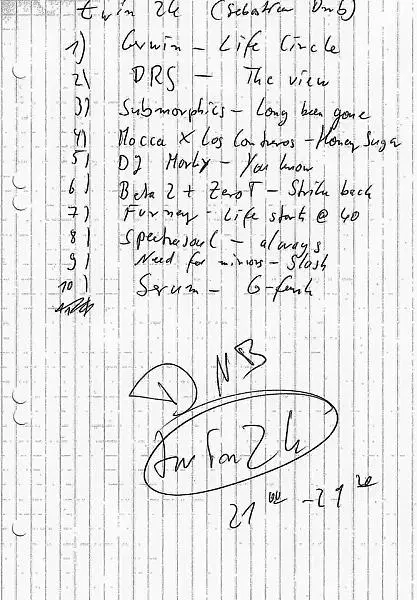 twin 2h (Sebastian Dnb)
1) Gerwin - Life Circle
2) DRS - The view
3) Submorphics - Long been gone
4) Mocca X Los Contreros - Honey Sugar
5) DJ Marky - You know
6) Beta 2 + Zero T - Strike back
7) Furney - Life starts @ 40
8) Spectrasoul - always
9) Need for mirrors - Slash
10) Serum - G-funk
DNB
21 00 - 21 20